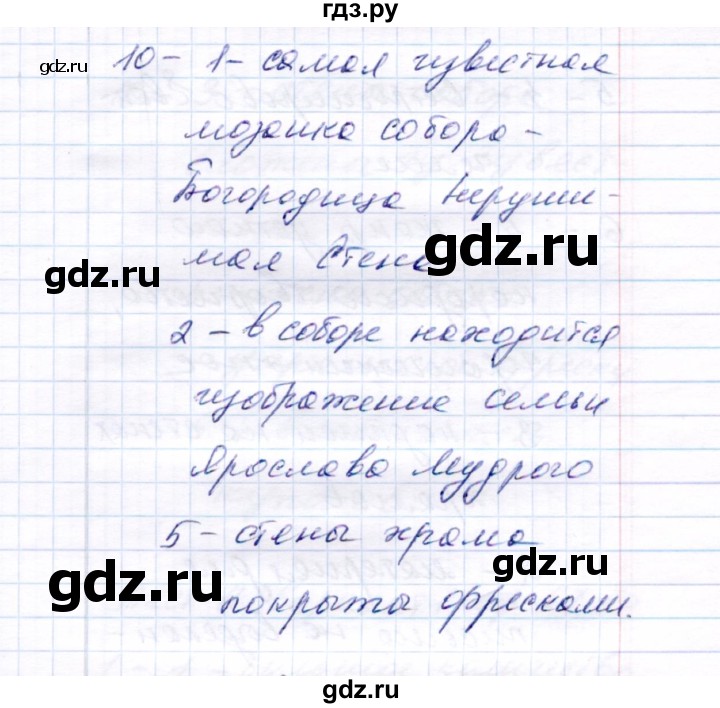 гдз.ру
gdz.ru
10- 1- самая известная
gdz.ru
мозаика собора -
Богородица Неруши-
gdz.ru
мая Стена
gdz.ru
2 - в соборе находится
изображение семьи
Ярослава Мудрого
5 - стены храма
gdz.ru
gdz.ru
покрыты фресками.
gdz.ru